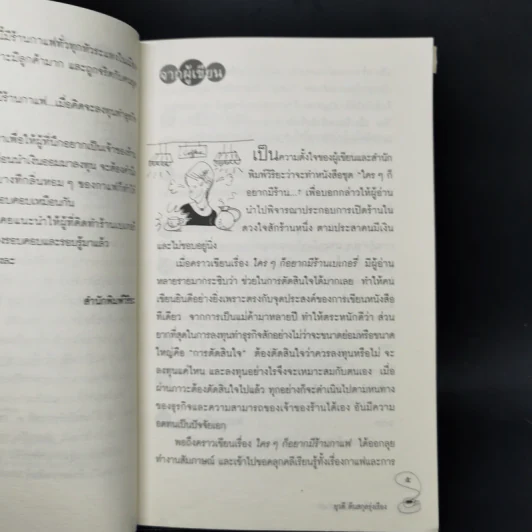 มีร้านกาแฟทั่วทุกหัวระแหงในเมือง
าะมีลูกค้ามาก และถูกจริตกับคน
ร้านกาแฟ...เมื่อคิดจะลงทุนทำธุรกิจ
าเพื่อให้ผู้ที่นึกอยากเป็นเจ้าของร้าน
อนนำเงินออมมาลงทุน จะต้องคำนึ
างทีกลิ่นหอม ๆ ของกาแฟก็ทำให้
อบคอบเหมือนกัน
คยแนะนำให้ผู้ที่คิดทำร้านเบเกอรี่
งรอบคอบและรอบรู้มาแล้ว
ละ
สำนักพิมพ์วิริยะ
จากผู้เขียน
เป็นความตั้งใจของผู้เขียนและสำนัก
พิมพ์วิริยะว่าจะทำหนังสือชุด "ใคร ๆ ก็
อยากมีร้าน...." เพื่อบอกกล่าวให้ผู้อ่าน
นำไปพิจารณาประกอบการเปิดร้านใน
ดวงใจสักร้านหนึ่ง ตามประสาคนมีเงิน
และไม่ชอบอยู่นิ่ง
เมื่อคราวเขียนเรื่อง ใคร ๆ ก็อยากมีร้านเบเกอรี่ มีผู้อ่าน
หลายรายมากระซิบว่า ช่วยในการตัดสินใจได้มากเลย ทำให้คน
เขียนยินดีอย่างยิ่งเพราะตรงกับจุดประสงค์ของการเขียนหนังสือ
ทีเดียว จากการเป็นแม่ค้ามาหลายปี ทำให้ตระหนักดีว่า ส่วน
ยากที่สุดในการลงทุนทำธุรกิจสักอย่างไม่ว่าจะขนาดย่อมหรือขนาด
ใหญ่คือ "การตัดสินใจ" ต้องตัดสินใจว่าควรลงทุนหรือไม่ จะ
ลงทุนแค่ไหน และลงทุนอย่างไรจึงจะเหมาะสมกับตนเอง เมื่อ
ผ่านภาวะต้องตัดสินใจไปแล้ว ทุกอย่างก็จะดำเนินไปตามหนทาง
ของธุรกิจและความสามารถของเจ้าของร้านได้เอง อันมีความ
อดทนเป็นปัจจัยเอก
พอถึงคราวเขียนเรื่อง ใคร ๆ ก็อยากมีร้านกาแฟ ได้ออกลุย
ทำงานสัมภาษณ์ และเข้าไปขอคลุกคลีเรียนรู้ทั้งเรื่องกาแฟและการ